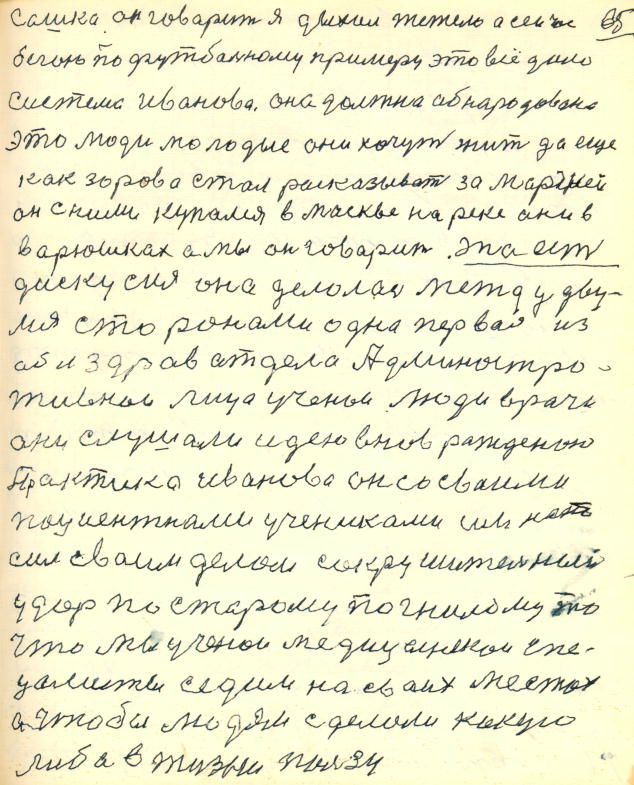 сашка он говарит я дыхал тежело а сейчас 65
бегою по футбалному примеру это всё дило
система иванова. она должна абнародована
это люди молодые они хочут жит да еще
как зорова стал расказыват за
он с ними купался в маскве на реке они в
варюшках а мы он говарит. эта ест
дискусия она делолас между дву-
мя сторонами одна первая из
аблздраватдела Админостро-
тивнои лица ученои люди врачи
они слушали идею внов рожденою
Практика иванова он со сваими
поциентками учениками им
сил сваим делом сокрушителний
удор по старому погнилому то
что мы ученои медицынскои спе-
цалисты седим на сваих местах
а чтобы людям сделоли какую
либа в жизни ползу